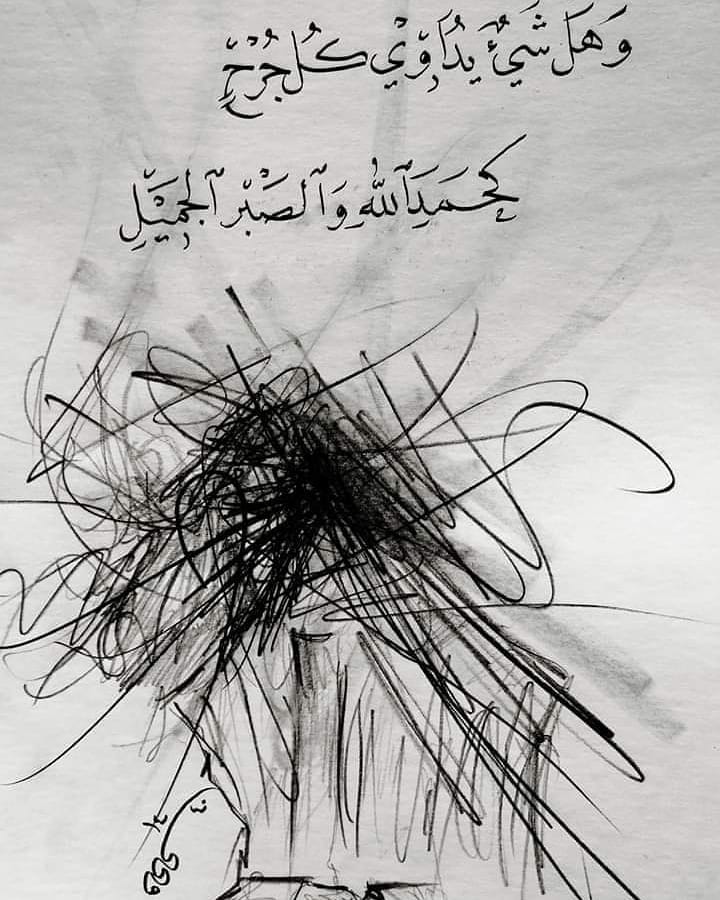 وَهَل شَيْءٌ يُدَاوِيْ كُل جُرْحٍ
كَحَمدِ ٱللّٰهِ وَٱلصَبْرِ ٱلجَمِيْلِ